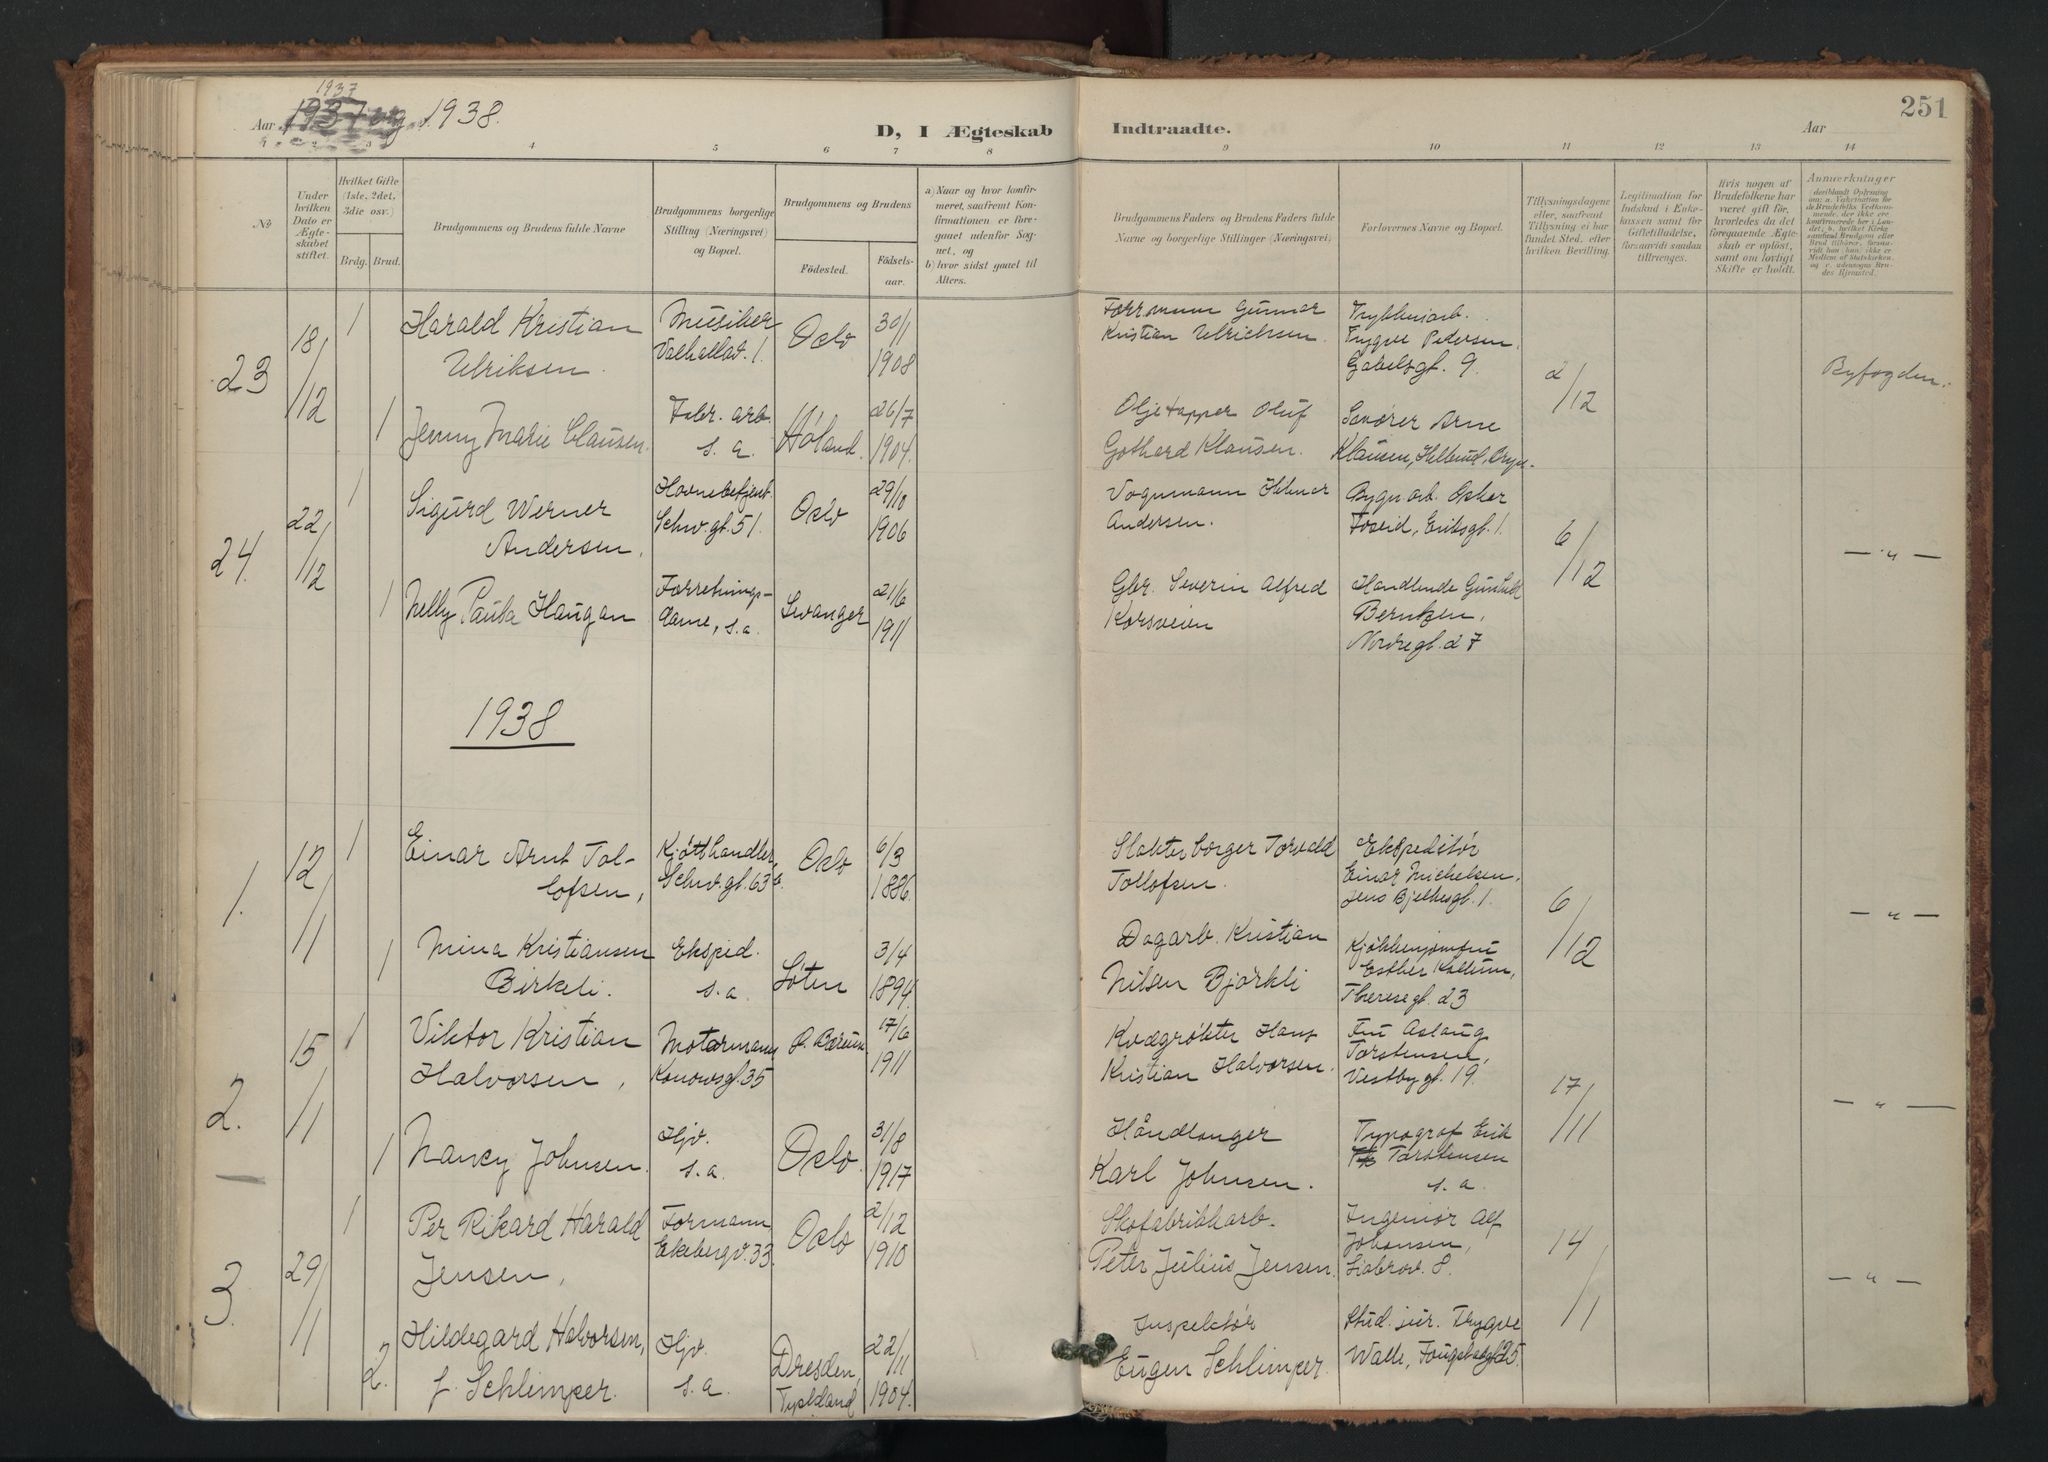 1937
Aar 1937 og 1938.
D, I Ægteskab Indtraadte.
Aar
251
2 3 4 5 6 7 8 9 10 11 12 13 14
No
Under hvilken Dato er Ægteskabet stiftet.
Hvilket Gifte (1ste, 2det, 3die osv.)
Brdg. Brud.
Brudgommens og Brudens fulde Navne
Brudgommens borgerlige Stilling (Næringsvei) og Bopæl.
Brudgommens og Brudens
Födested. Födselsaar.
a) Naar og hvor konfirmeret, saafremt Konfirmationen er foregaaet udenfor Sognet, og
b) hvor sidst gaaet til Alters.
Brudgommens Faders og Brudens Faders fulde Navne og borgerlige Stillinger (Næringsvei)
Forlovernes Navne og Bopæl.
Tillysningsdagene eller, saafremt Tillysning ei har fundet Sted, efter hvilken Bevilling.
Legitimation for Indskud i Enkekassen samt for Giftetilladelse, forsaavidt saadan tiltrænges.
Hvis nogen af Brudefolkene har været gift før, hvorledes da det foregaaende Ægteskab er oplöst, samt om lovligt Skifte er holdt.
Anmærkninger
23 18/12 1 Harald Kristian Ulriksen. Musiker Valhallav. 1. Oslo 30/1 1908
Kristian Ulrichsen Trygve Pedersen, Gabelsgt. 9. 2/12 Byfogden.
1 Jenny Marie Clausen. Fabr. arb. s. a. Høland. 26/7 1904.
Oljetapper Oluf Gothard Klausen. Arne Klausen,
24. 22/12 1 Sigurd Werner Andersen, Schw.gt. 51. Oslo 29/10 1906
Vognmann Andersen. Bygn.arb. Oskar Eriksgt. 1. 6/12 — " —
1 Nelly Paula Haugan Forretningsdame, s.a. Levanger 21/6 1911
Gbr. Severin Alfred Korsveien Handlende Berntzen, Nordregt. 27
1938
1. 12/1 1 Einar Arnt Tollofsen, Kjøtthandler, Schw.gt. 63 b. Oslo 6/3 1886.
Slakterborger Torvald Tollofsen. Ekspeditør Einar Michelsen, Jens Bjelkesgt. 1. 6/12 — " —
1 Mina Kristiansen Birkeli. Eksped. s. a. Løten 3/4 1894.
Dagarb. Kristian Nilsen Bjørkli Kjøkkenjomfru Esther Theresegt. 23
2. 15/1 1 Viktor Kristian Halvorsen, Motormann Konowsgt. 35 Ø. Bærum 17/6 1911
Kvægrøkter Hans Kristian Halvorsen. Fru Aslaug Torstensen, Vestbygt. 19. 17/11 — " —
1 Nancy Johnsen. Hjv. s.a. Oslo. 31/8 1917
Håndlanger Karl Johnsen. Typograf Erik Torstensen s. a.
3. 29/1 1 Per Rikard Harald Jensen, Formann Ekebergv. 33. Oslo 2/12 1910
Skofabrikkarb. Peter Julius Jensen. Ingeniør Alf Johansen, 8. 14/1 — " —
2. Hildegard Halvorsen, f. Schlimper. Hjv. s.a. Dresden, Tyskland 22/11 1904.
Inspektør Eugen Schlimper. Stud. jur. Trygve Walle, 25.